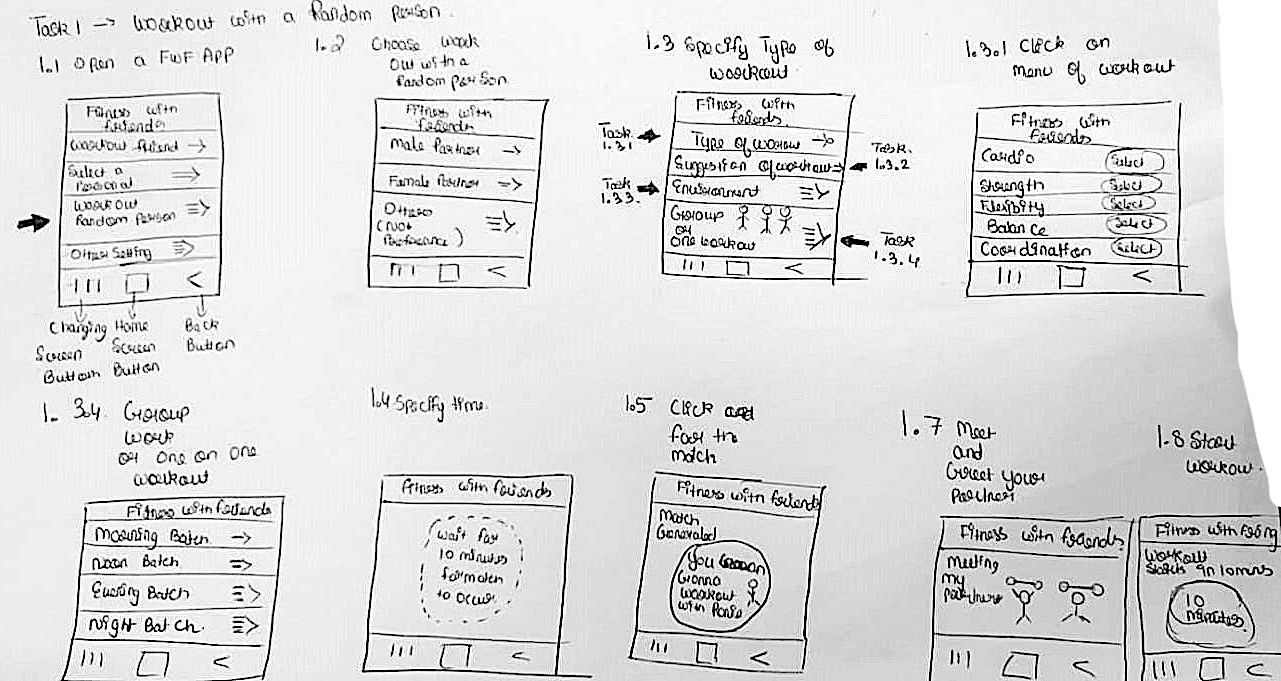 Task 1 → Workout with a Random Person.
1.1 Open a FWF APP
Fitness with
friends
Workout friend →
Select a
Personal
Workout
Random Person
Other Setting
III
<
Changing
Screen
Button
Home
Screen
Button
Back
Button
1.2 Choose work
out with a
Random person
Fitness with
friends
Male Partner →
Female Partner
Others
(Not
Preference)
III
<
1.3 Specify Type of
workout
Fitness with
friends.
Type of workout →
Suggestion of workout
Environment
Group
or
One workout
III
<
Task
1.3.1
Task.
1.3.2
Task
1.3.3.
Task
1.3.4
1.3.1 Click on
menu of workout
Fitness with
friends
Cardio Select
Strength Select
Flexibity Select
Balance Select
Coordination Select
III
<
1. 3.4. Group
work
or One on One
workout
Fitness with friends
Morning Batch →
Noon Batch
Evening Batch
Night Batch.
III
<
1.4 Specify time.
Fitness with friends
wait for
10 minutes
for match
to occur
III
<
1.5 Click and
for the
match
Fitness with friends
Match
Generated
You
Gonna
workout
with
III
<
1.7 Meet
and
Greet your
Partner
Fitness with friends
Meeting
My
Partners
III
<
1.8 Start
workout.
Fitness with
Workout
Starts in 10mns
10
minutes.
III
<